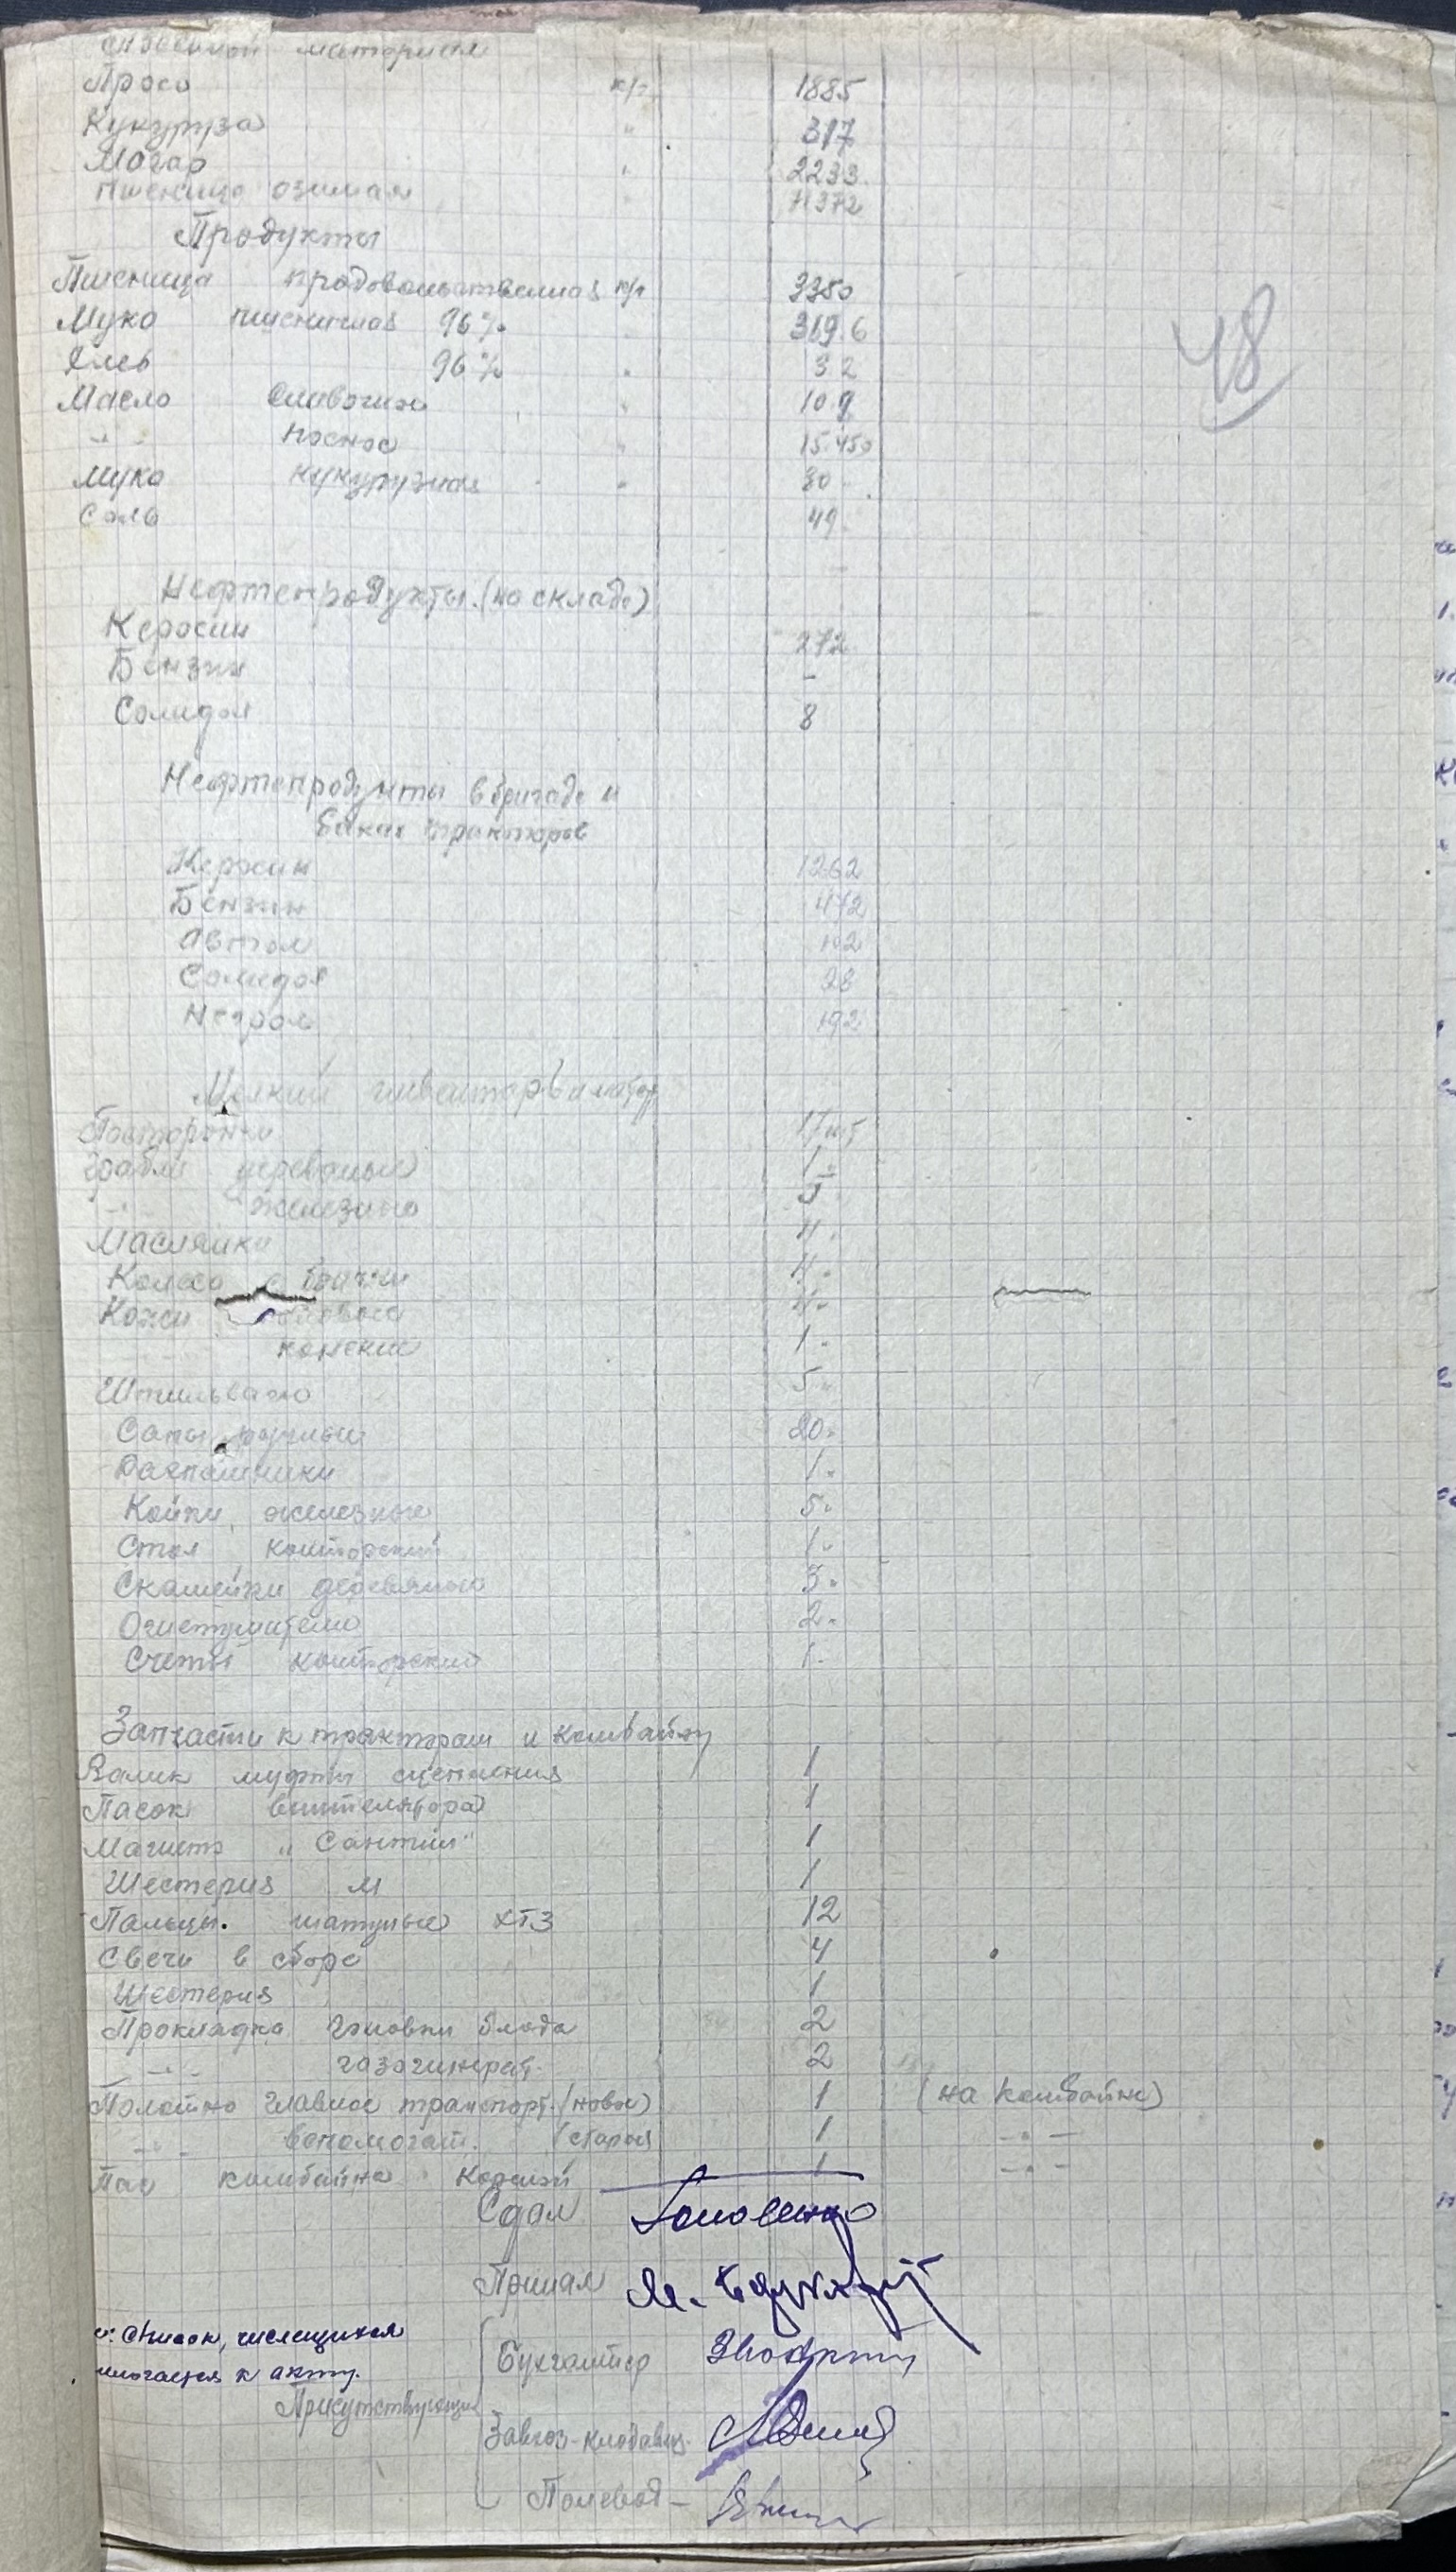 материал
Просо к/г 1885
Кукуруза " 317
Могар " 2233
Пшеница озимая 71372
Продукты
Пшеница продовольственная к/г 3350
48
Мука пшеничная 96% 319.6
Хлеб 96% " 32
Масло сливочное " 10.9
-"- постное " 15.450
Мука кукурузная " 30
Соль 49
Нефтепродукты (на складе)
Керосин 272
Бензин -
Солидол 8
Нефтепродукты в бригаде и
баках тракторов
Керосин 1262
Бензин 472
Автол 102
Солидол 28
Нигрол 192
Мелкий инвентарь и матер
Постромки 17 шт
Грабли деревяные 1 "
-"- железные
Маслянки 4 "
Колесо с брички 4 "
Кожи 4 "
конские 1 "
Штильваги 5 "
Сапы ручные 20 "
Распашники 1 "
Койки железные 5 "
Стол конторский 1 "
Скамейки деревяные 3 "
Огнетушители 2 "
Счеты конторские 1 "
Запчасти к тракторам и комбайну
Валик муфты сцепления 1
Пасок вентелятора 1
Магнето „Сантил" 1
Шестерня м 1
Пальцы шатуные ХТЗ 12
Свечи в сборе 4
Шестерня 1
Прокладка головки блока 2
-"- газогинерат. 2
Полотно главное транспорт. (новое) 1 (на комбайне)
-"- вспомогат. (старая 1 -"-
Пас комбайна 1 -"-
Сдал
Принял М.
список, числящихся
к акту.
Присутствующие
Бухгалтер
Завхоз-кладовщ.
Полевод -